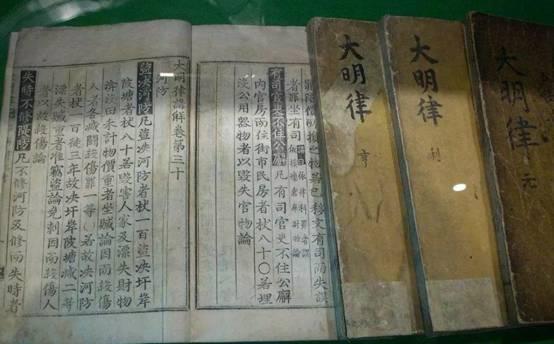 大明律 元
大明律 利
大明律 亨
者罪坐有司
有司官吏不住公廨 凡有司官吏不住公廨
內官房而住街市民房者杖八十○若埋
沒公用器物者以毀失官物論
大明律講解卷第三十
河防
盜決河防 凡盜決河防者杖一百盜決圩岸
陂塘者杖八十若毀害人家及漂失財物
渰沒田禾計物價重者坐贓論因而殺傷
人者各減鬪殺傷罪一等○若故決河防
者杖一百徒三年故決圩岸陂塘減二等
漂失贓重者准竊盜論免刺因而殺傷人
者以故殺傷論
失時不修隄防 凡不修河防及修而失時者